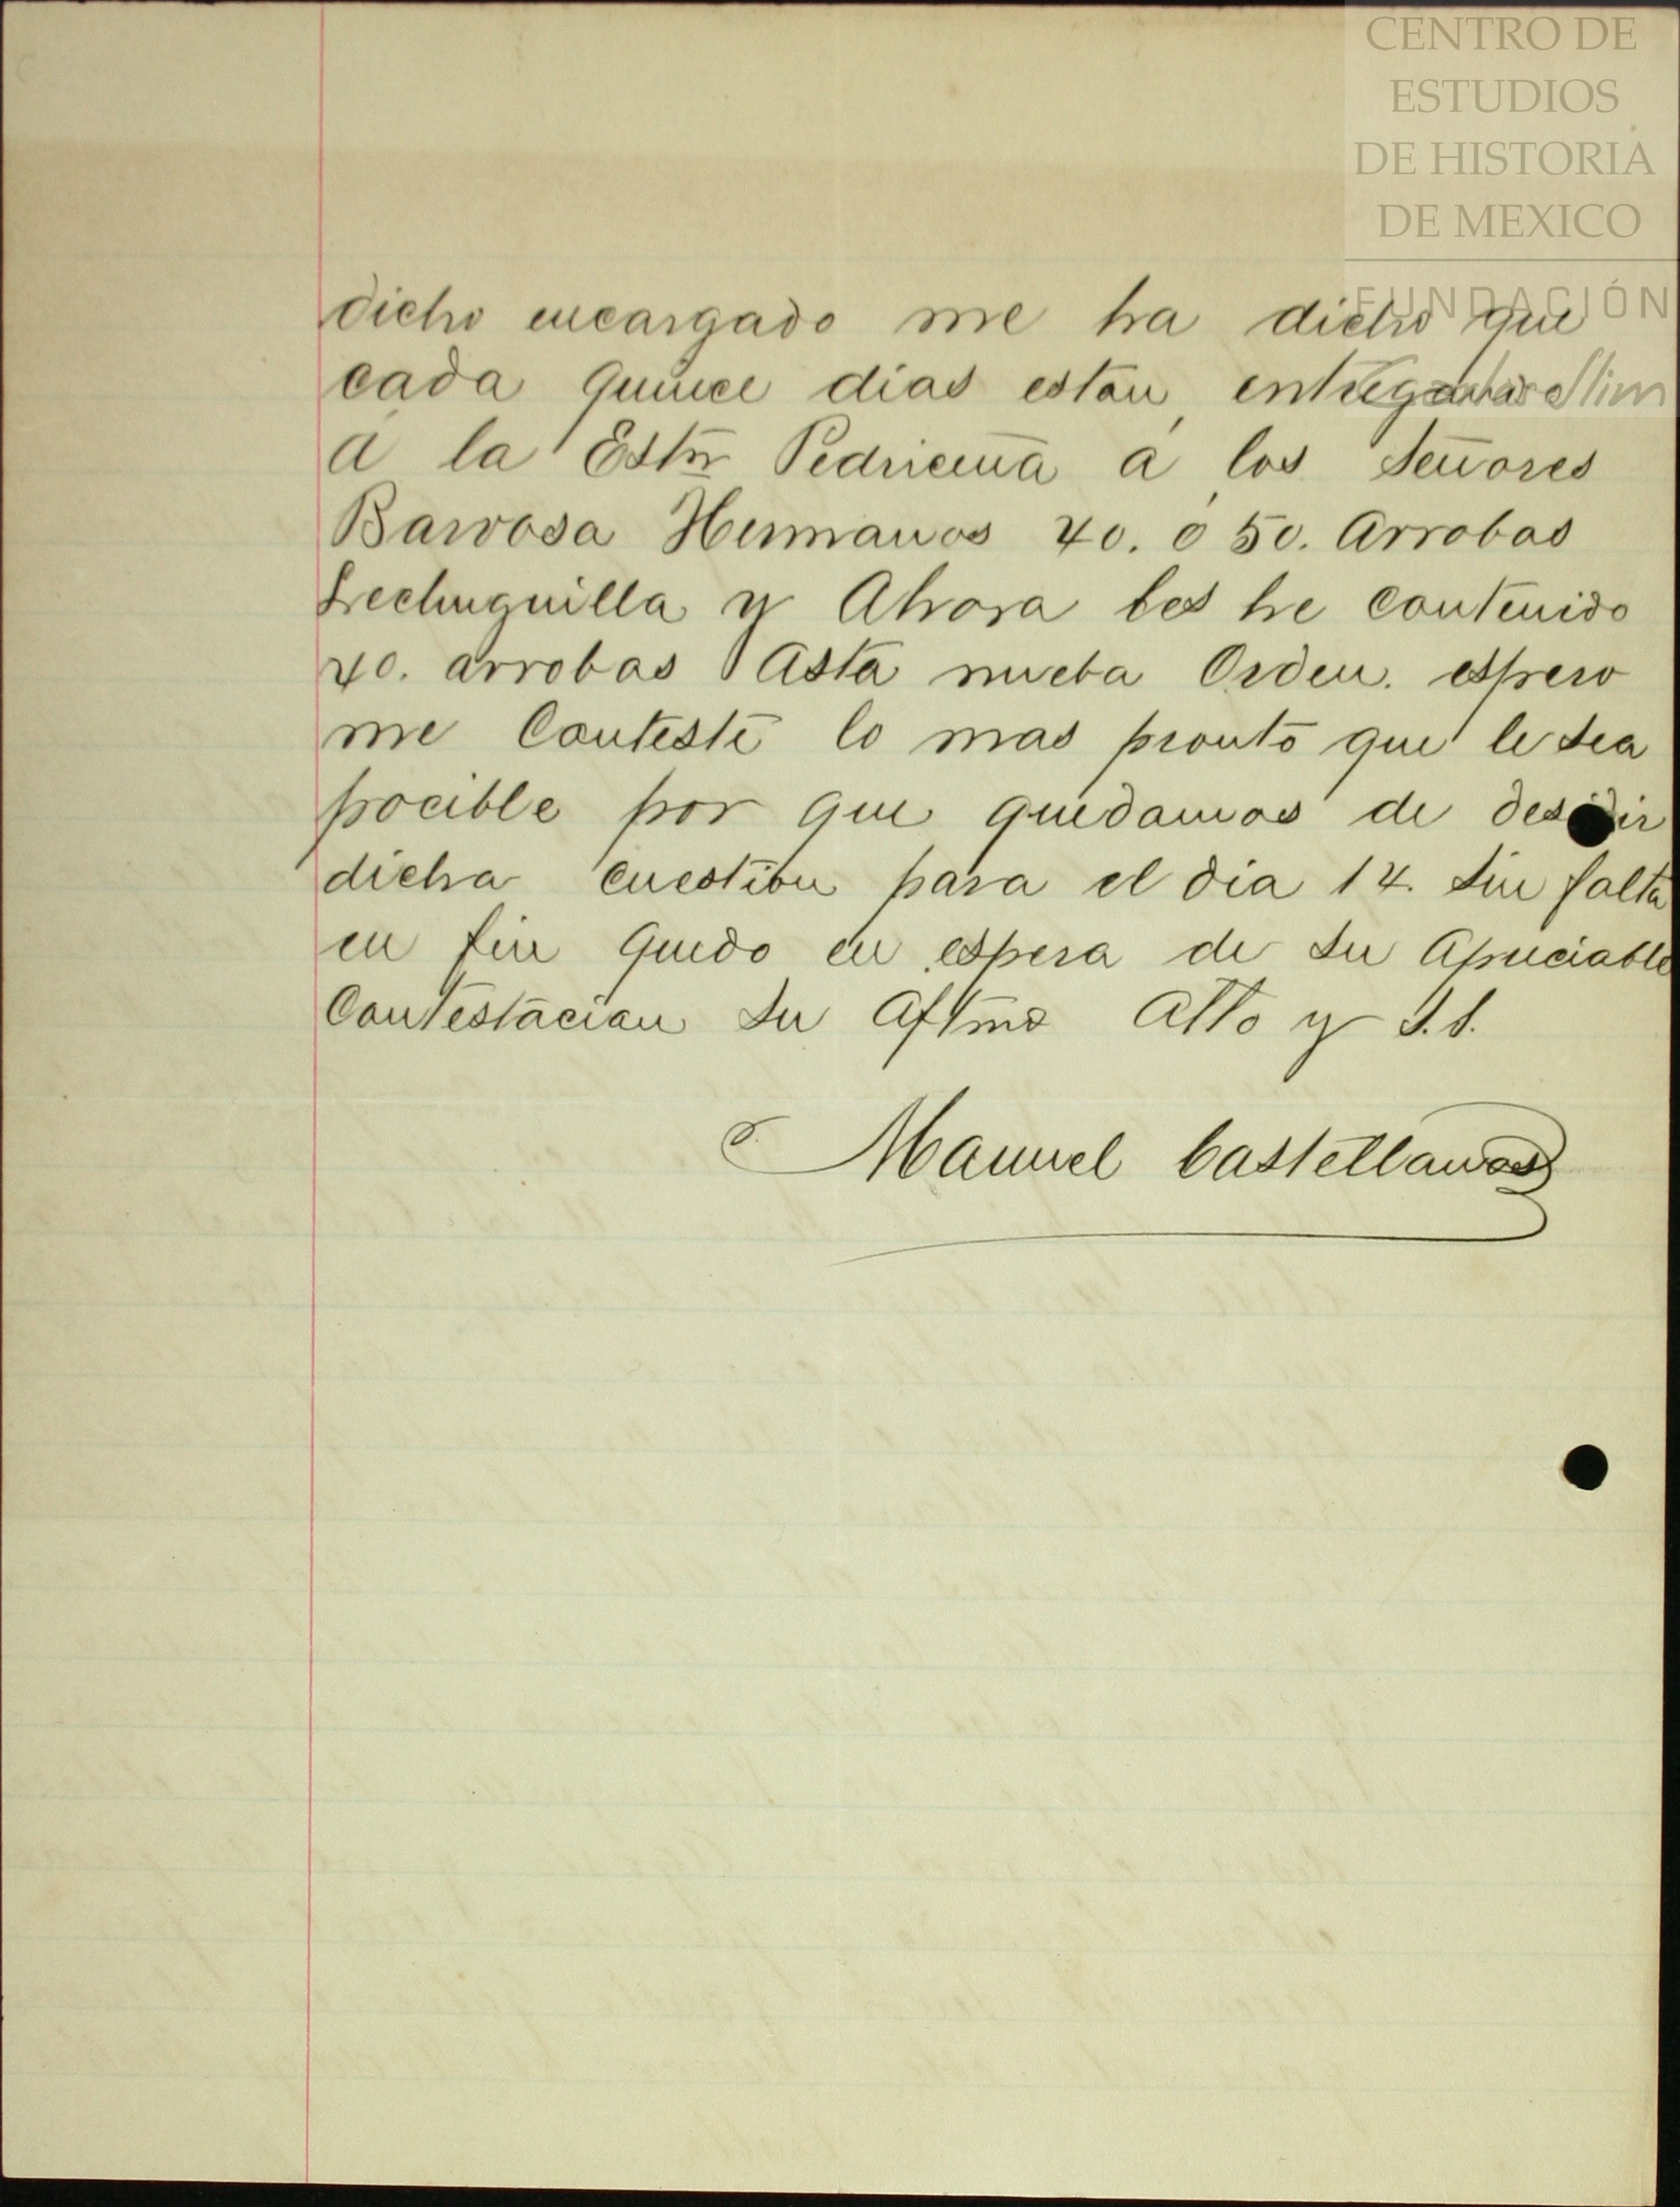 CENTRO DE
ESTUDIOS
DE HISTORIA
DE MEXICO
FUNDACIÓN
Slim
dicho encargado me ha dicho que
cada quince dias estan
á la Estn Pedriceña a los Señores
Barvosa Hermanos 40. o 50. Arrobas
Lechuguilla y Ahora les he contenido
40. arrobas Asta nueba Orden. espero
me Conteste lo mas pronto que le sea
pocible por que quedamos de desidir
dicha cuestion para el dia 14. sin falta
en fin quedo en espera de su Apreciable
Contestacion su Aftmo Atto y S.S.
Manuel Castellanos